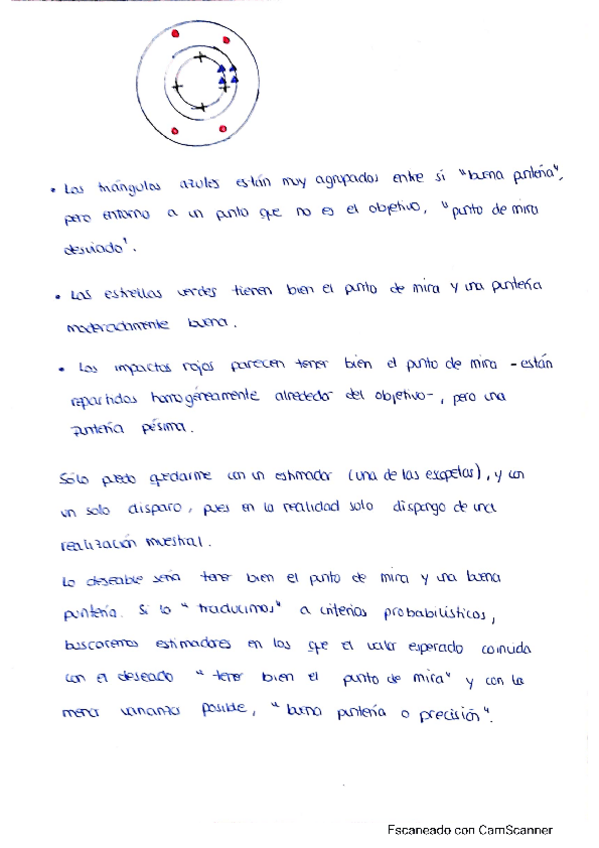 • Los triángulos azules están muy agrupados entre sí "buena puntería",
pero entorno a un punto que no es el objetivo, "punto de mira
desviado".
• Las estrellas verdes tienen bien el punto de mira y una puntería
moderadamente buena.
• Los impactos rojos parecen tener bien el punto de mira - están
repartidos homogéneamente alrededor del objetivo-, pero una
puntería pésima.
Sólo puedo quedarme con un estimador (una de las escopetas), y con
un solo disparo, pues en la realidad solo dispongo de una
realización muestral.
Lo deseable sería tener bien el punto de mira y una buena
puntería. Si lo "traducimos" a criterios probabilísticos,
buscaremos estimadores en los que el valor esperado coincida
con el deseado "tener bien el punto de mira" y con la
menor varianza posible, "buena puntería o precisión".
Escaneado con CamScanner